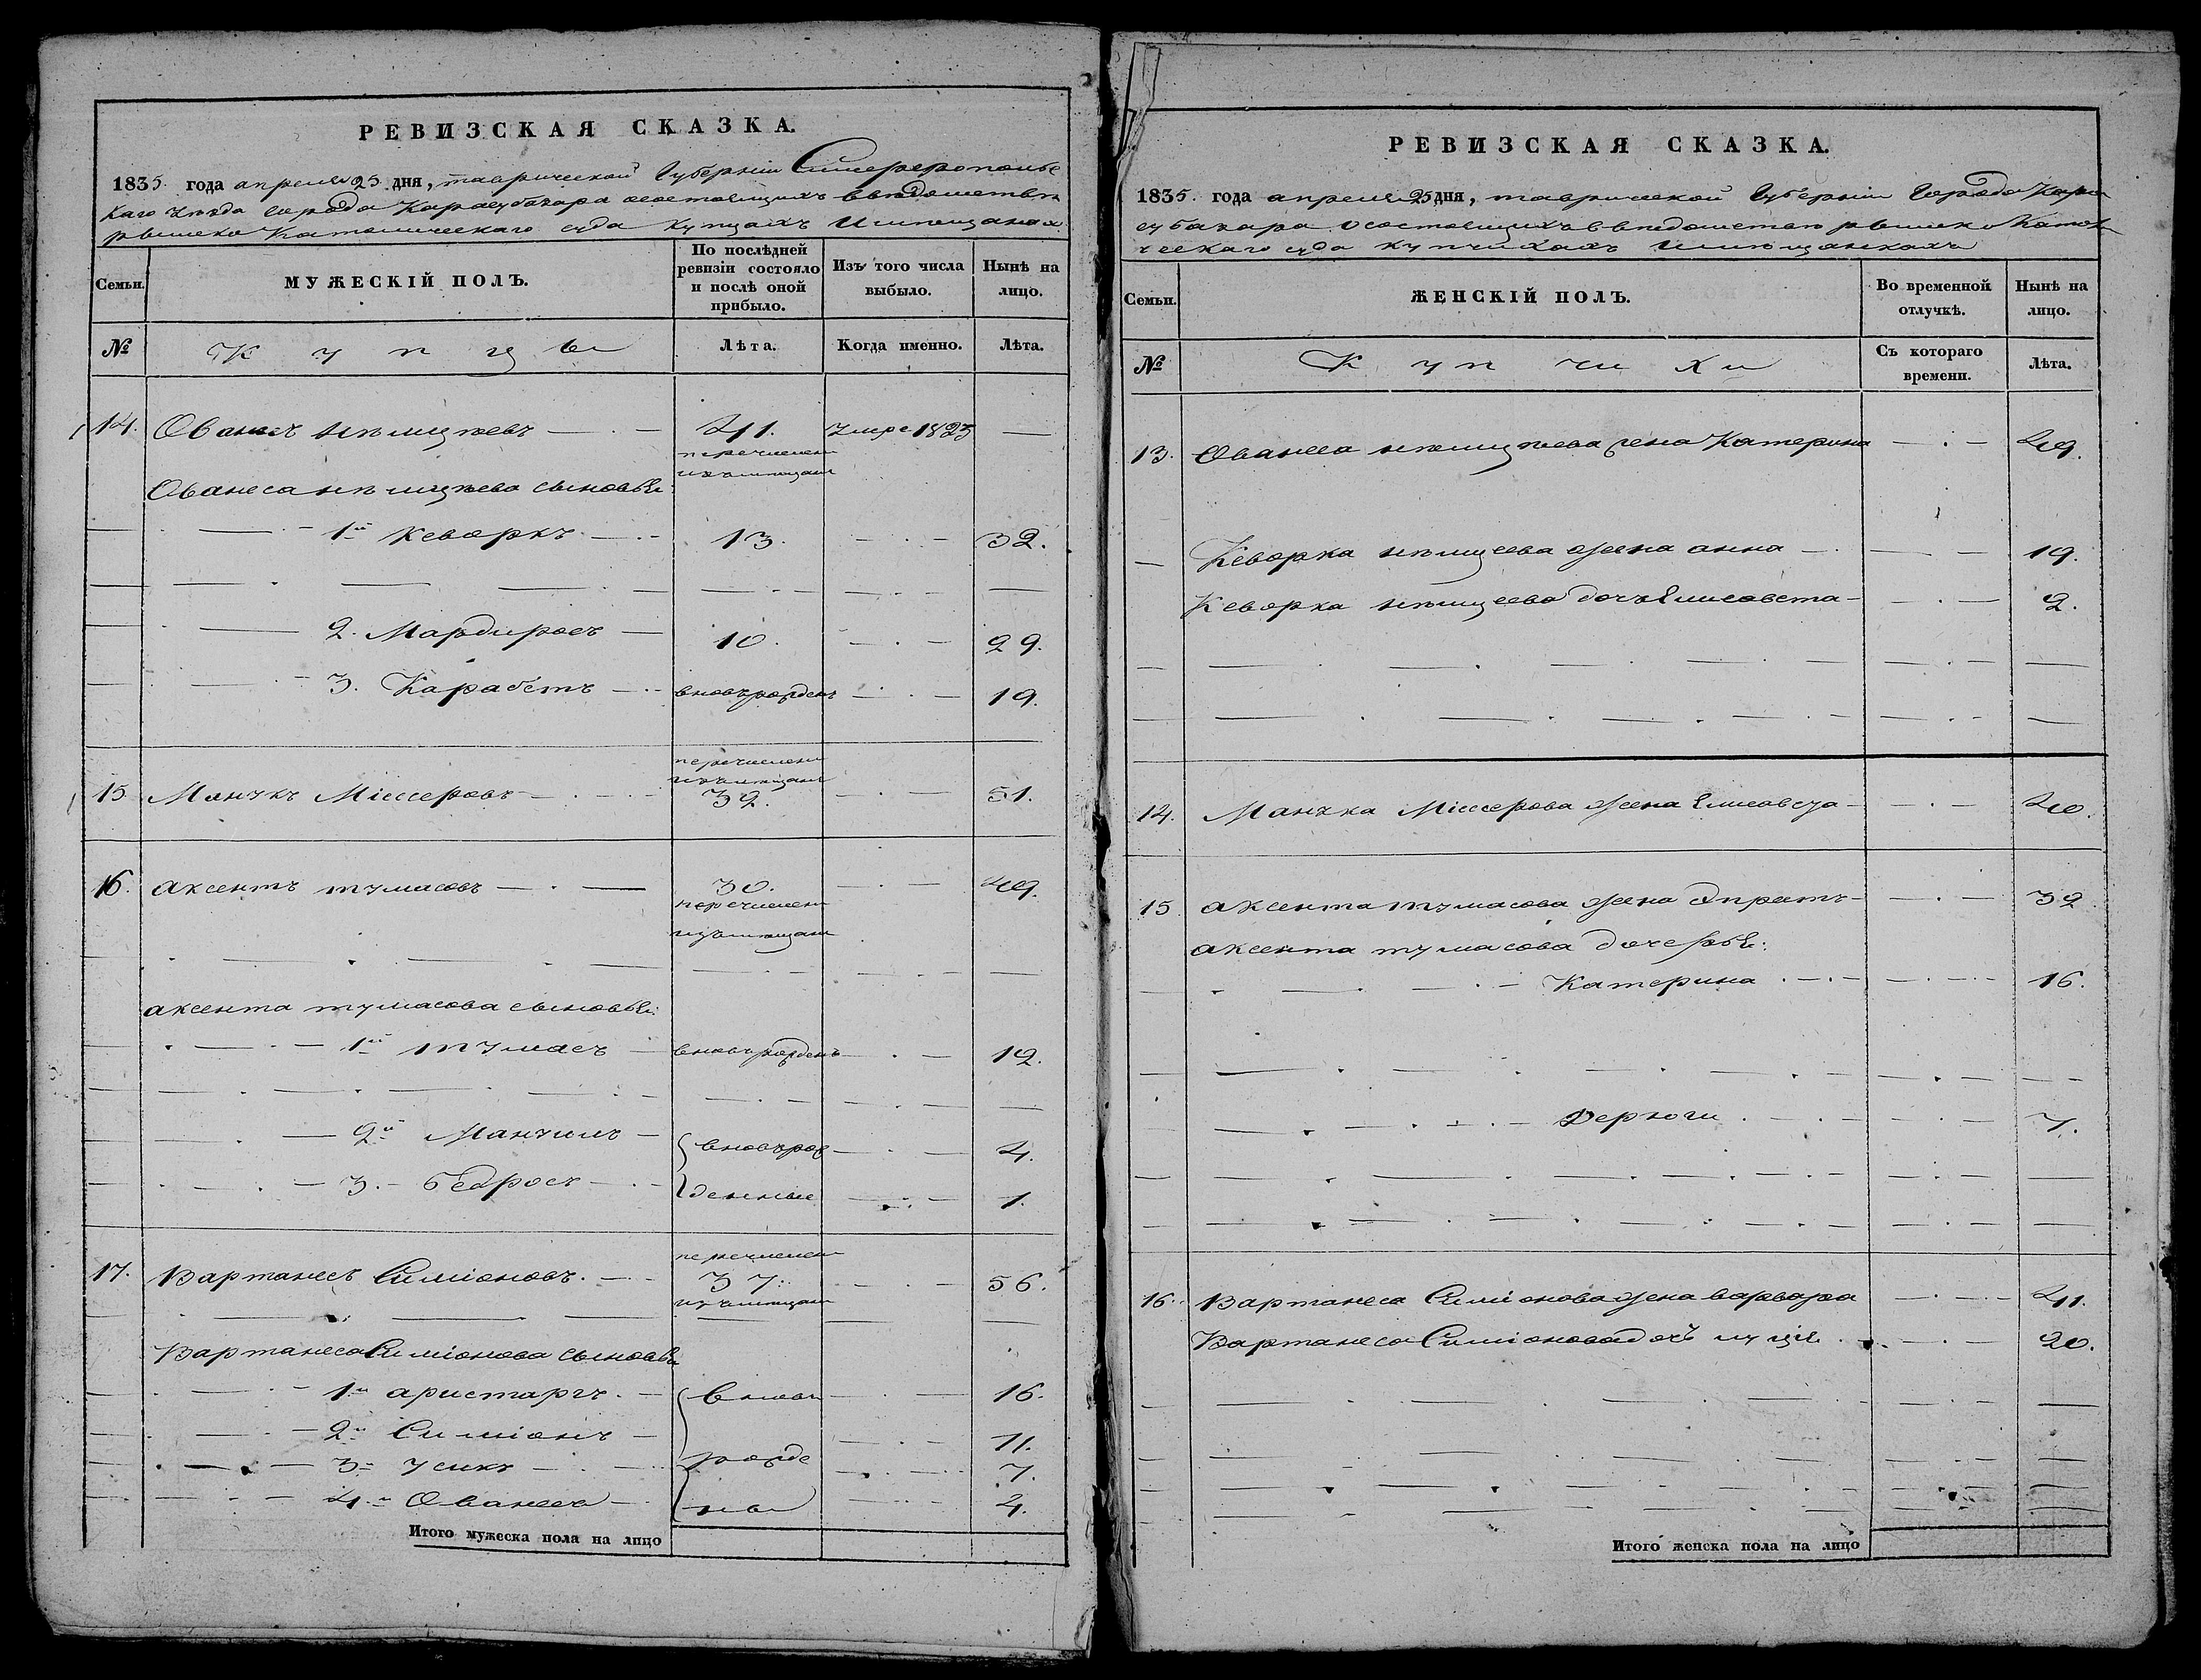 РЕВИЗСКАЯ СКАЗКА.
1835. года апреля 25 дня, таврической Губерніи Симферополь
скаго уезда города Карасубазара осостоящихъ введомстве
рымско Католическаго суда купцахъ имещанах
Семьи.
МУЖЕСКІЙ ПОЛЪ.
По послѣдней ревизіи состояло и послѣ оной прибыло.
Изъ того числа выбыло.
Нынѣ на лицо.
№
Купцы
Лѣта.
Когда именно.
Лѣта.
14. Ованесъ 41. Умре 1823 —
перечислен
измещан
Ованеса сыновья
1й Кеворкъ 13. 32.
2. Мардиросъ 10. 29.
3. Карабетъ вновърожденъ 19.
перечислен
измещан
15 Манукъ Миссеровъ 32. 51.
16. аксентъ тумасовъ 30. 49.
перечислен
изъмещан
аксента тумасова сыновья:
1й тумасъ вновърожденъ 12.
2й вновърож 4.
3. бедросъ денные 1.
перечислен
17. Вартанесъ Симіоновъ. 37. 56.
изъмещан
Вартанеса Симіонова сыновья
1й аристаргъ. вновь 16.
2й Симіонъ 11.
3 Усикъ рожде 7.
4. Ованесъ ны 4.
Итого мужеска пола на лицо
РЕВИЗСКАЯ СКАЗКА.
1835. года апреля 25 дня, таврической Губерніи Города Кара
субазара осостоящихъ введомстве рымско Катол
ческаго суда купчихахъ имещанкахъ
Семьи.
ЖЕНСКІЙ ПОЛЪ.
Во временной отлучкѣ.
Нынѣ на лицо.
№
Купчихи
Съ котораго времени.
Лѣта.
13. Ованеса жена Катерина 49.
Кеворка жена анна 19.
Кеворка дочь Елисавета 2.
14. Манука Миссерова жена Елисавета 40.
15 аксента тумасова жена 32
аксента тумасова дочерья:
Катерина 16.
7.
16. Вартанеса Симіонова жена варвара 41.
Вартанеса Симіонова дочь луція 20.
Итого женска пола на лицо